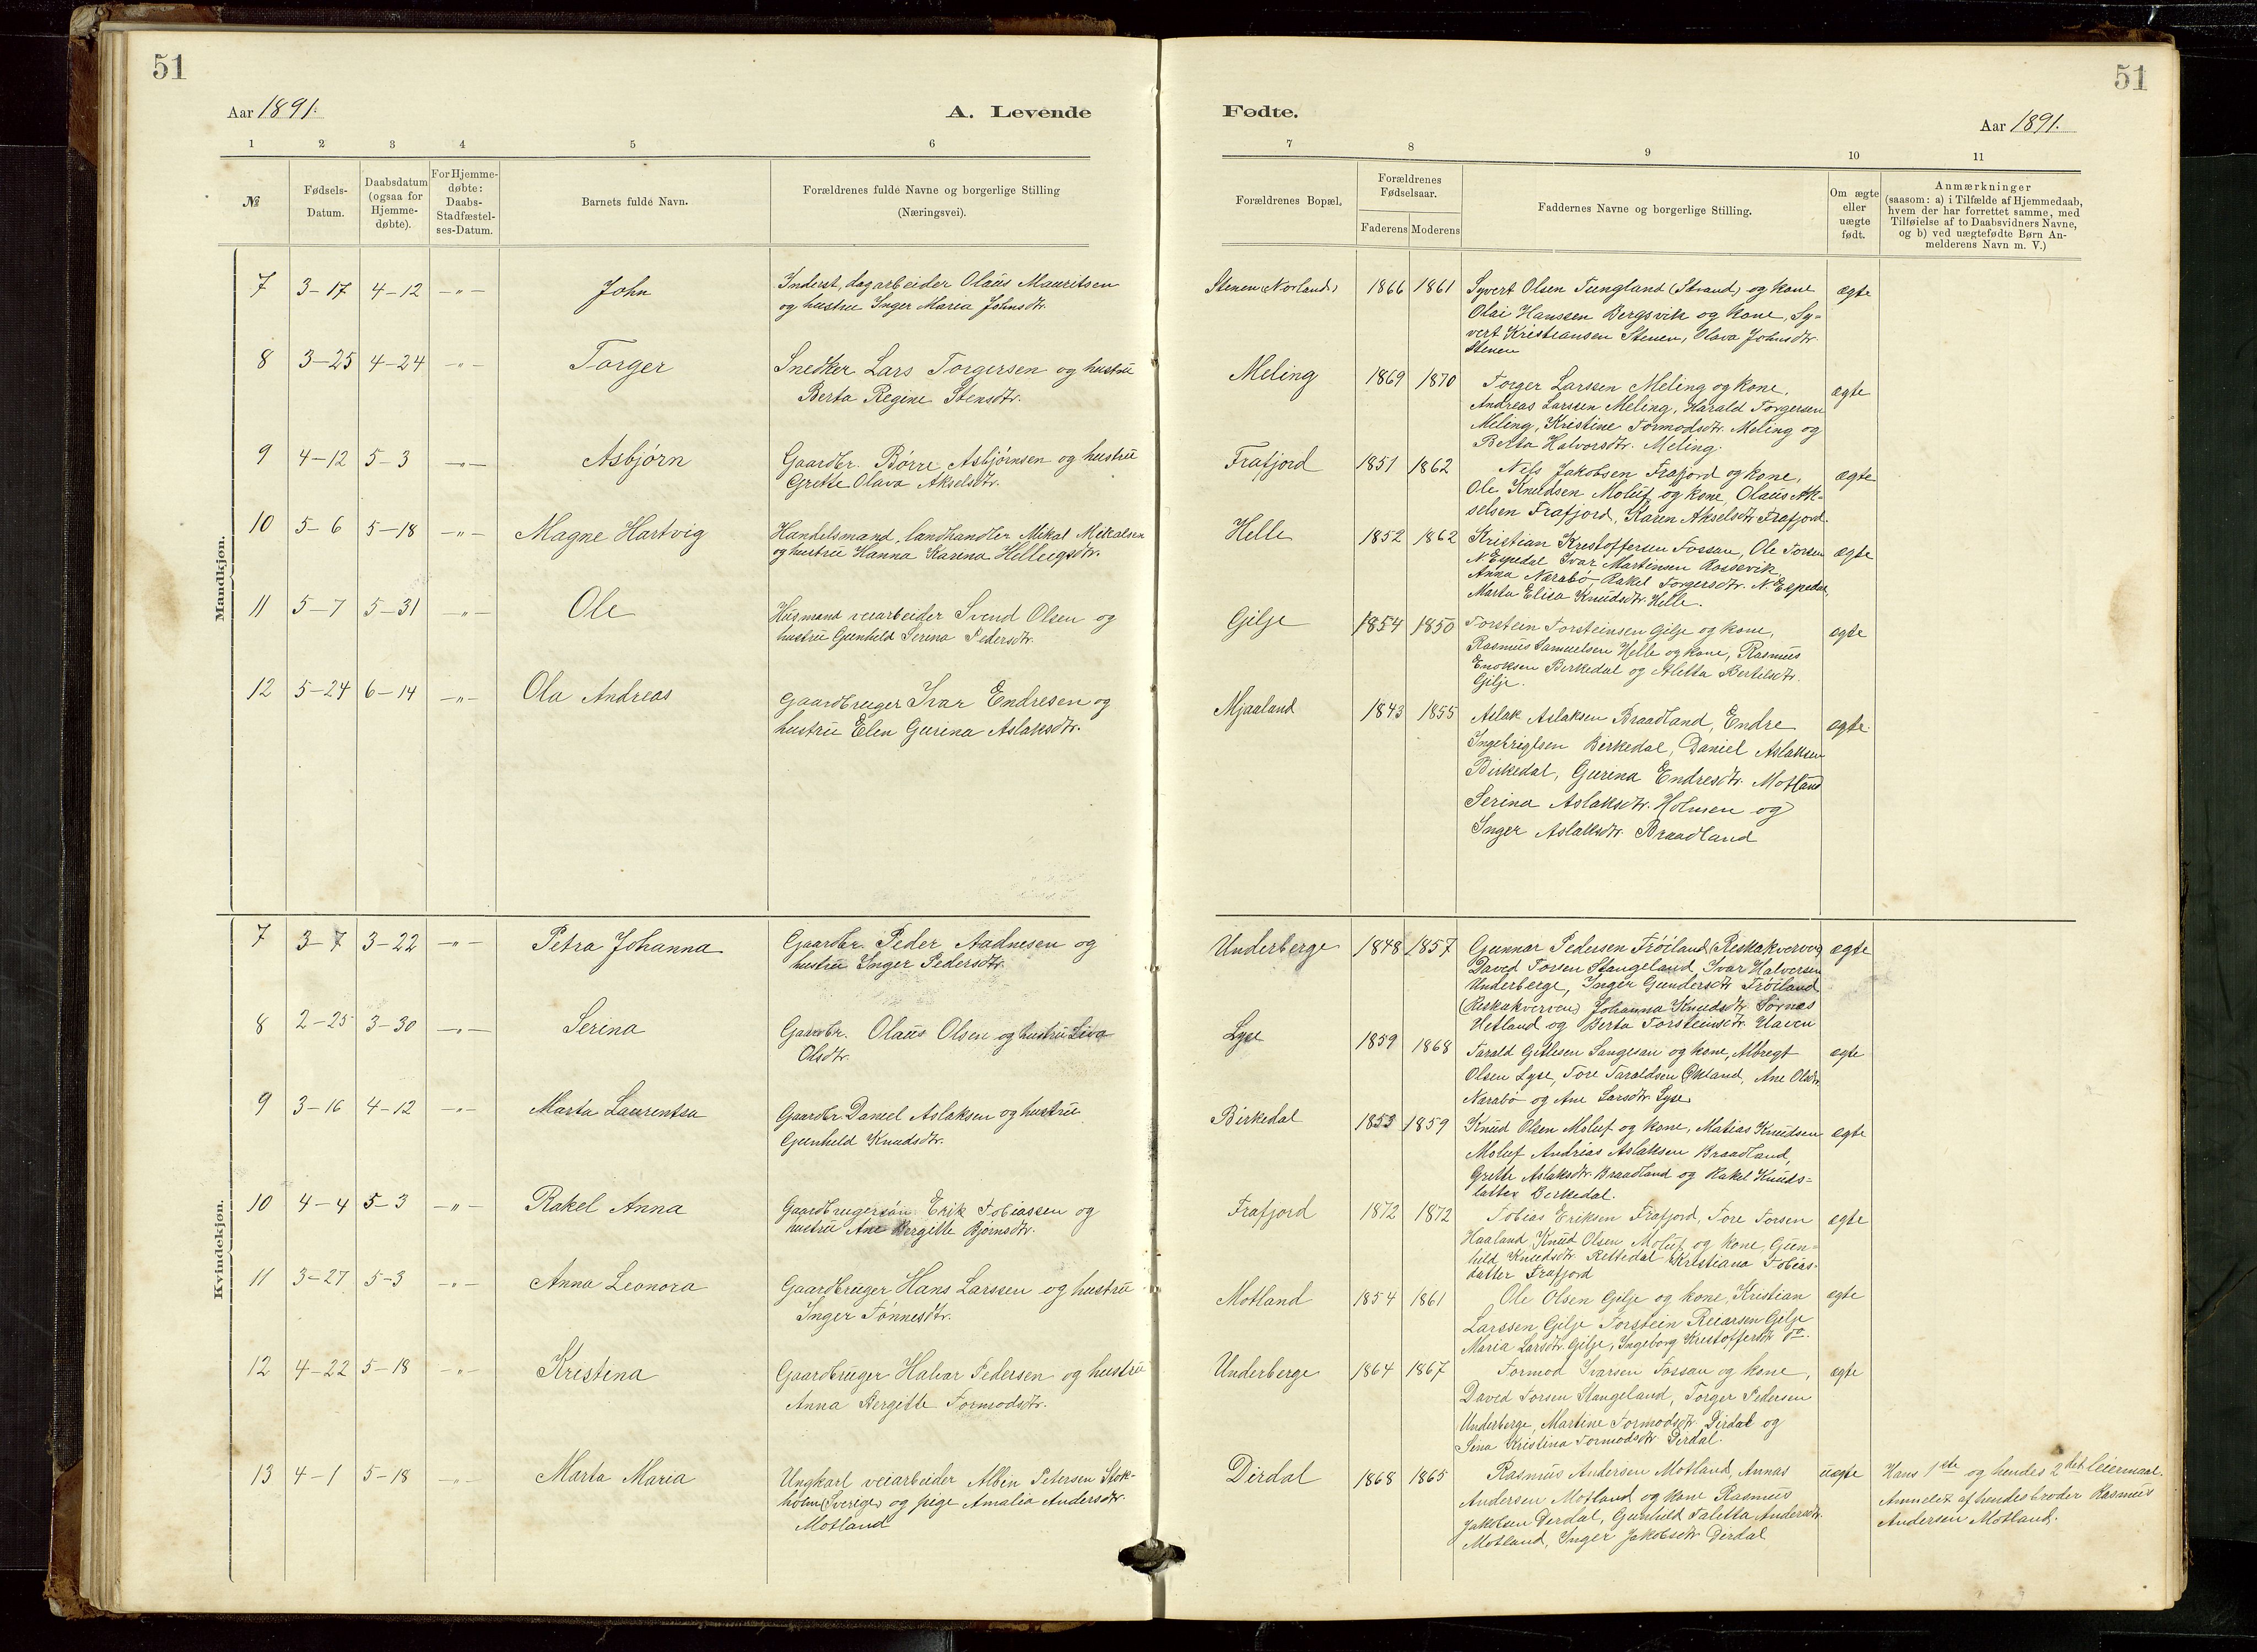 51
Aar 1891.
A. Levende
1 2 3 4 5 6
№
Fødsels-Datum.
Daabsdatum (ogsaa for Hjemme-døbte).
For Hjemme-døbte: Daabs-Stadfæstel-ses-Datum.
Barnets fulde Navn.
Forældrenes fulde Navne og borgerlige Stilling
(Næringsvei).
Mandkjøn.
7 3-17 4-12 -"- John Inderst, dagarbeider Olaus Mauritsen
og hustru Inger Maria Johnsdtr.
8 3-25 4-24 -"- Torger Snedker Lars Torgersen og hustru
Berta Regine Stensdtr.
9 4-12 5-3 -"- Asbjørn Gaardbr. Børre Asbjørnsen og hustru
Grette Olava Akselsdtr.
10 5-6 5-18 -"- Magne Hartvig Handelsmand, landhandler Mikal Mikalsen
og hustru Hanna Kasena
11 5-7 5-31 -"- Ole Husmand veiarbeider Svend Olsen og
hustru Gunheld Serena Pedersdtr.
12 5-24 6-14 -"- Ola Andreas Gaardbruger Ivar Endresen og
hustru Elen Gurina Aslaksdtr.
Kvindekjøn.
7 3-7 3-22 -"- Petra Johanna Gaardbr. Peder Aadnesen og
hustru Inger Pedersdtr.
8 2-25 3-30 -"- Serina Gaardbr. Olaus Olsen og hustru Siva
Olsdtr.
9 3-16 4-12 -"- Marta Laurentsa Gaardbr. Daniel Aslaksen og hustru
Gunheld Knudsdtr.
10 4-4 5-3 -"- Rakel Anna Gaardbrugersøn Erik Tobiassen og
hustru Ane Bergitte Bjørnsdtr.
11 3-27 5-3 -"- Anna Leonora Gaardbruger Hans Larssen og hustru
Inger Tønnesdtr.
12 4-22 5-18 -"- Krestena Gaardbruger Halvar Pedersen og hustru
Anna Bergitte Tormodsdtr.
13 4-1 5-18 -"- Marta Maria Ungkarl veiarbeider Albin Petersen Stok-
holm (Sverige) og pige Amalia Andersdtr.
Motland
51
Fødte.
Aar 1891.
7 8 9 10 11
Forældrenes Bopæl.
Forældrenes Fødselsaar.
Faderens Moderens
Faddernes Navne og borgerlige Stilling.
Om ægte eller uægte født.
Anmærkninger
(saasom: a) i Tilfælde af Hjemmedaab,
hvem der har forrettet samme, med
Tilføielse af to Daabsvidners Navne,
og b) ved uægtefødte Børn An-
melderens Navn m. V.)
Stenen (Norland) 1866 1861 Syvert Olsen Tungland (Strand) og kone ægte
Olai Hanssen Bergsvik og kone, Sy-
vert Kristiansen Stenen, Olava Johnsdtr.
Stenen
Meling 1869 1870 Torger Larssen Meling og kone, ægte
Andreas Larssen Meling, Harald Torgersen
Meling, Kristine Tormodsdtr. Meling og
Berta Halvorsdtr. Meling.
Frafjord 1851 1862 Nils Jakobsen Frafjord og kone, ægte
Ole Knudsen Moluf og kone, Olaus Ak-
selsen Frafjord, Karen Akselsdtr Frafjord.
Helle 1852 1862 Kristian Krestoffersen Fossan, Ole Torsen ægte
N. Espedal Ivar Martinsen Rossevik,
Anna Narabø Rakel Torgersdtr. N. Espedal,
Marta Elisa Knudsdtr. Helle.
Gilje 1854 1850 Torstein Torsteinsen Gilje og kone, ægte
Rasmus Samuelsen Helle og kone, Rasmus
Enoksen Birkedal og Aletta Bertilsdtr.
Gilje.
Mjaaland 1843 1855 Aslak Aslaksen Braadland, Endre ægte
Ingebrigtsen Birkedal, Daniel Aslaksen
Birkedal, Gurina Endresdtr. Motland
Serina Aslaksdtr. Holmen og
Inger Aslaksdtr. Braadland
Underberge 1848 1857 Gunnar Pedersen Frøiland (Reskakverven) ægte
David Torsen Stangeland, Ivar Halversen
Underberge, Inger Gundersdtr Frøiland
(Reskakverven) Johanna Knudsdtr Sørnes
Hetland og Berta Torsteinsdtr.
Lyse 1859 1868 Tarald Getlesen Sangesan og kone, Albregt ægte
Olsen Lyse, Tore Taraldsen Økland, Ane Olsdtr.
Narabø og Ane Larsdtr. Lyse
Birkedal 1853 1859 Knud Olsen Moluf og kone, Matias Knudsen ægte
Moluf Andreas Aslaksen Braadland,
Grette Aslaksdtr. Braadland og Rakel Knuds-
datter Berkedal.
Frafjord 1872 1872 Tobias Eriksen Frafjord, Tore Torsen ægte
Haaland Knud Olsen Moluf og kone, Gun-
hild Knudsdtr. Rettedal Kristiana Tobias-
datter Frafjord
Motland 1854 1861 Ole Olsen Gilje og kone, Kristian ægte
Larssen Gilje Torstein Reiarsen Gilje
Maria Larsdtr. Gilje, Ingeborg Krestoffersdtr do.
Underberge 1864 1867 Tormod Ivarsen Fossan og kone, ægte
David Torsen Stangeland, Torger Pedersen
Underberge, Martine Tormodsdtr. Dirdal og
Sina Kristina Tormodsdtr Dirdal.
Dirdal 1868 1865 Rasmus Andersen Motland, Annas uægte Hans 1ste og hendes 2det leiermaal.
Andersen Motland og kone Rasmus Anmeldt af hendes broder Rasmus
Jakobsen Derdal, Gunheld Taletta Andersdtr. Andersen Motland.
Motland, Inger Jakobsdtr Dirdal